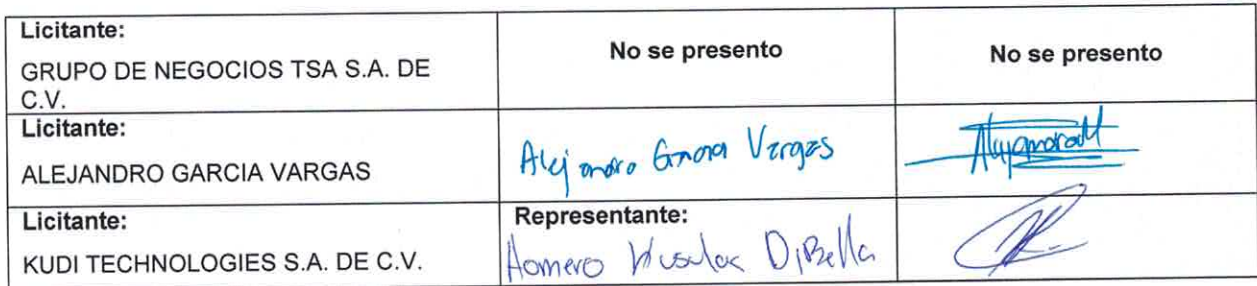 Licitante:
GRUPO DE NEGOCIOS TSA S.A. DE
C.V.
No se presento
No se presento
Licitante:
ALEJANDRO GARCIA VARGAS
Alejandro Garcia Vargas
Licitante:
KUDI TECHNOLOGIES S.A. DE C.V.
Representante:
Homero DiBella